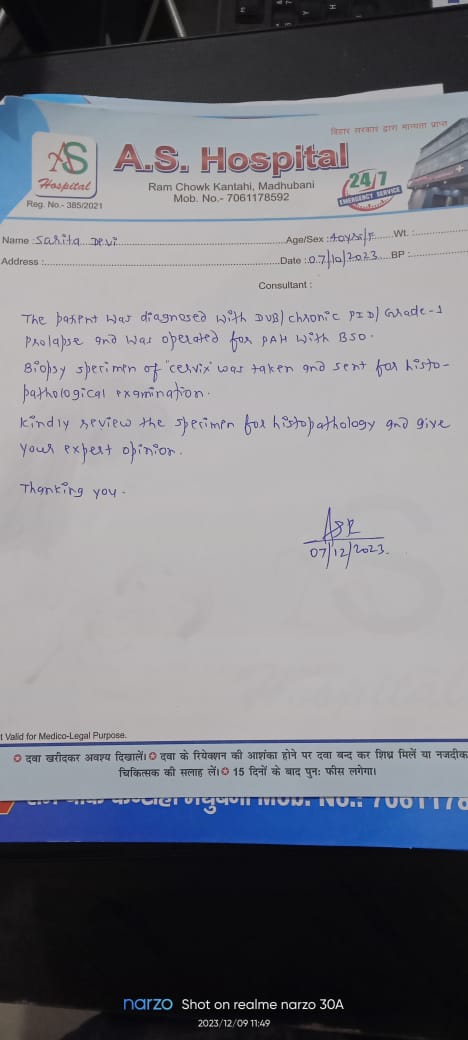 बिहार सरकार द्वारा मान्यता प्राप्त
AS
Hospital
Reg. No.- 385/2021
A.S. Hospital
Ram Chowk Kantahi, Madhubani
Mob. No.- 7061178592
24/7
EMERGENCY SERVICE
Name : Sarita Devi Age/Sex : 40yrs/F Wt. :
Address : Date : 07/10/2023 BP :
Consultant :
The patient was diagnosed with DUB/ chronic PID/ Grade-1
Prolapse and was operated for PAH with BSO.
Biopsy specimen of "cervix" was taken and sent for histo-
pathological examination.
Kindly review the specimen for histopathology and give
your expert opinion.
Thanking you.
07/12/2023.
t Valid for Medico-Legal Purpose.
दवा खरीदकर अवश्य दिखालें। दवा के रियेक्शन की आशंका होने पर दवा बन्द कर शिघ्र मिलें या नजदीक
चिकित्सक की सलाह लें। 15 दिनों के बाद पुनः फीस लगेगा।
narzo Shot on realme narzo 30A
2023/12/09 11:49